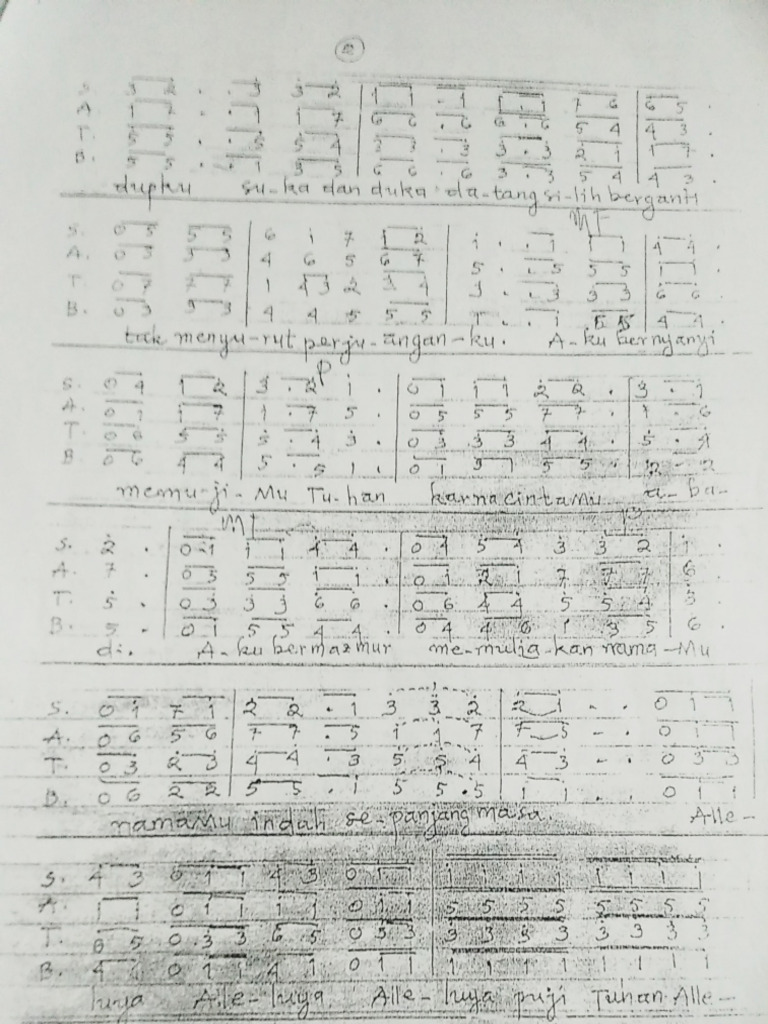 2
S. 3 2 . . 3 3 2 | 1 1 . 1 1 . 1 7 6 | 6 5 .
A. 1 7 . . 1 1 7 | 6 6 . 6 6 . 6 5 4 | 4 3 .
T. 5 5 . . 5 5 4 | 3 3 . 3 3 . 3 2 1 | 1 7 .
B. 5 5 . . 1 3 5 | 6 6 . 6 3 . 3 5 4 | 4 3 .
dupku su-ka dan duka da-tang si-lih berganti
MF
S. 0 5 5 5 | 6 1 7 1 2 | 1 . . 1 1 1 | 4 4 .
A. 0 3 5 3 | 4 6 5 6 7 | 5 . . 5 5 5 | 1 1 .
T. 0 7 7 7 | 1 4 3 2 1 4 | 3 . . 3 3 3 | 6 6 .
B. 0 3 5 3 | 4 4 5 5 5 | 1 . . 1 5 5 | 4 4 .
tak menyu-rut perju-angan-ku. A-ku bernyanyi
P
S. 0 4 1 2 | 3 . 2 1 . | 0 1 1 1 2 2 . | 3 . 1
A. 0 1 1 7 | 1 . 7 5 . | 0 5 5 5 7 7 . | 1 . 6
T. 0 6 5 5 | 5 . 4 3 . | 0 3 3 3 4 4 . | 5 .
B 0 6 4 4 | 5 . 5 1 . | 0 1 5 1 5 5 . | 2 . 2
memu-ji-Mu Tu-han karna cintaMu a-ba-
MF
S. 2 . | 0 1 1 1 4 4 . | 0 4 5 4 3 3 2 | 1 .
A. 7 . | 0 5 5 5 1 1 . | 0 1 2 1 7 7 7 | 6 .
T. 5 . | 0 3 3 3 6 6 . | 0 6 4 4 5 5 4 | 3 .
B. 5 . | 0 1 5 5 4 4 . | 0 4 4 6 1 3 5 | 6 .
di. A-ku bermazmur me-mulia-kan nama-Mu
S. 0 1 7 1 | 2 2 . 1 3 3 2 | 2 1 . . 0 1 1
A. 0 6 5 6 | 7 7 . 5 1 1 7 | 7 5 . . 0 1 1
T. 0 3 2 3 | 4 4 . 3 5 5 4 | 4 3 . . 0 3 3
B. 0 6 2 2 | 5 5 . 1 5 5 . 5 | 1 1 . . 0 1 1
namaMu indah se-panjang masa. Alle-
S. 4 3 0 1 1 4 3 0 1 1 | 1 1 1 1 1 1 1 1
A. 1 1 0 1 1 1 1 0 1 1 | 5 5 5 5 5 5 5 5
T. 6 5 0 3 3 6 5 0 3 3 | 3 3 3 3 3 3 3 3
B. 4 1 0 1 1 4 1 0 1 1 | 1 1 1 1 1 1 1 1
luya Alle-luya. Alle-luya puji Tuhan Alle-